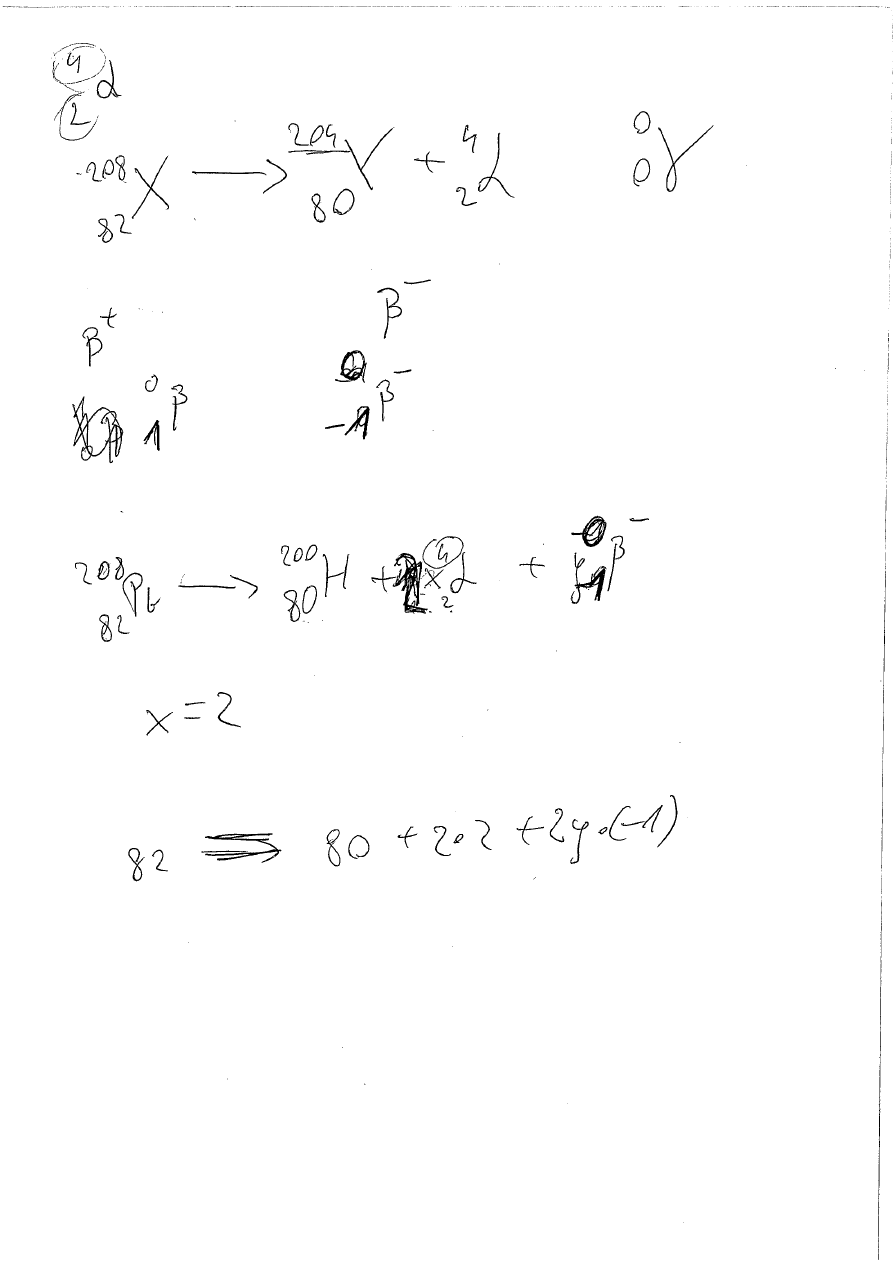 ⁴₂α
²⁰⁸₈₂X → ²⁰⁴₈₀Y + ⁴₂α ⁰₀γ
β⁺ β⁻
⁰₁β ⁰₋₁β⁻
²⁰⁸₈₂Pb → ²⁰⁰₈₀H + x ⁴₂α + y ⁰₋₁β⁻
x = 2
82 ⇒ 80 + 2·2 + 2y·(-1)